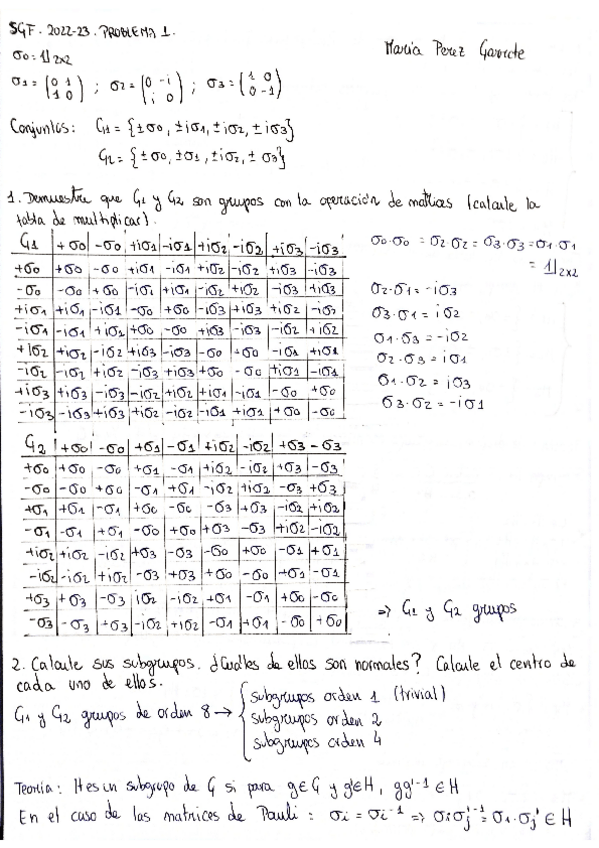 SGF. 2022-23. PROBLEMA 1.
María Perez Garrote
σ0 = 1l2x2
σ1 = (0 1 / 1 0) ; σ2 = (0 -i / i 0) ; σ3 = (1 0 / 0 -1)
Conjuntos: G1 = {±σ0, ±iσ1, ±iσ2, ±iσ3}
G2 = {±σ0, ±σ1, ±iσ2, ±σ3}
1. Demuestra que G1 y G2 son grupos con la operación de matrices (calcule la
tabla de multiplicar).
G1 | +σ0 | -σ0 | +iσ1 | -iσ1 | +iσ2 | -iσ2 | +iσ3 | -iσ3
+σ0 | +σ0 | -σ0 | +iσ1 | -iσ1 | +iσ2 | -iσ2 | +iσ3 | -iσ3
-σ0 | -σ0 | +σ0 | -iσ1 | +iσ1 | -iσ2 | +iσ2 | -iσ3 | +iσ3
+iσ1 | +iσ1 | -iσ1 | -σ0 | +σ0 | -iσ3 | +iσ3 | +iσ2 | -iσ2
-iσ1 | -iσ1 | +iσ1 | +σ0 | -σ0 | +iσ3 | -iσ3 | -iσ2 | +iσ2
+iσ2 | +iσ2 | -iσ2 | +iσ3 | -iσ3 | -σ0 | +σ0 | -iσ1 | +iσ1
-iσ2 | -iσ2 | +iσ2 | -iσ3 | +iσ3 | +σ0 | -σ0 | +iσ1 | -iσ1
+iσ3 | +iσ3 | -iσ3 | -iσ2 | +iσ2 | +iσ1 | -iσ1 | -σ0 | +σ0
-iσ3 | -iσ3 | +iσ3 | +iσ2 | -iσ2 | -iσ1 | +iσ1 | +σ0 | -σ0
σ0·σ0 = σ2·σ2 = σ3·σ3 = σ1·σ1
= 1l2x2
σ2·σ1 = -iσ3
σ3·σ1 = iσ2
σ1·σ3 = -iσ2
σ2·σ3 = iσ1
σ1·σ2 = iσ3
σ3·σ2 = -iσ1
G2 | +σ0 | -σ0 | +σ1 | -σ1 | +iσ2 | -iσ2 | +σ3 | -σ3
+σ0 | +σ0 | -σ0 | +σ1 | -σ1 | +iσ2 | -iσ2 | +σ3 | -σ3
-σ0 | -σ0 | +σ0 | -σ1 | +σ1 | -iσ2 | +iσ2 | -σ3 | +σ3
+σ1 | +σ1 | -σ1 | +σ0 | -σ0 | -σ3 | +σ3 | -iσ2 | +iσ2
-σ1 | -σ1 | +σ1 | -σ0 | +σ0 | +σ3 | -σ3 | +iσ2 | -iσ2
+iσ2 | +iσ2 | -iσ2 | +σ3 | -σ3 | -σ0 | +σ0 | -σ1 | +σ1
-iσ2 | -iσ2 | +iσ2 | -σ3 | +σ3 | +σ0 | -σ0 | +σ1 | -σ1
+σ3 | +σ3 | -σ3 | iσ2 | -iσ2 | +σ1 | -σ1 | +σ0 | -σ0
-σ3 | -σ3 | +σ3 | -iσ2 | +iσ2 | -σ1 | +σ1 | -σ0 | +σ0
=> G1 y G2 grupos
2. Calcule sus subgrupos. ¿Cuáles de ellos son normales? Calcule el centro de
cada uno de ellos.
G1 y G2 grupos de orden 8 → { subgrupos orden 1 (trivial)
subgrupos orden 2
subgrupos orden 4
Teoría: H es un subgrupo de G si para g∈G y g'∈H, gg'⁻¹ ∈ H
En el caso de las matrices de Pauli: σi = σi⁻¹ => σiσj'⁻¹ = σ1·σj' ∈ H